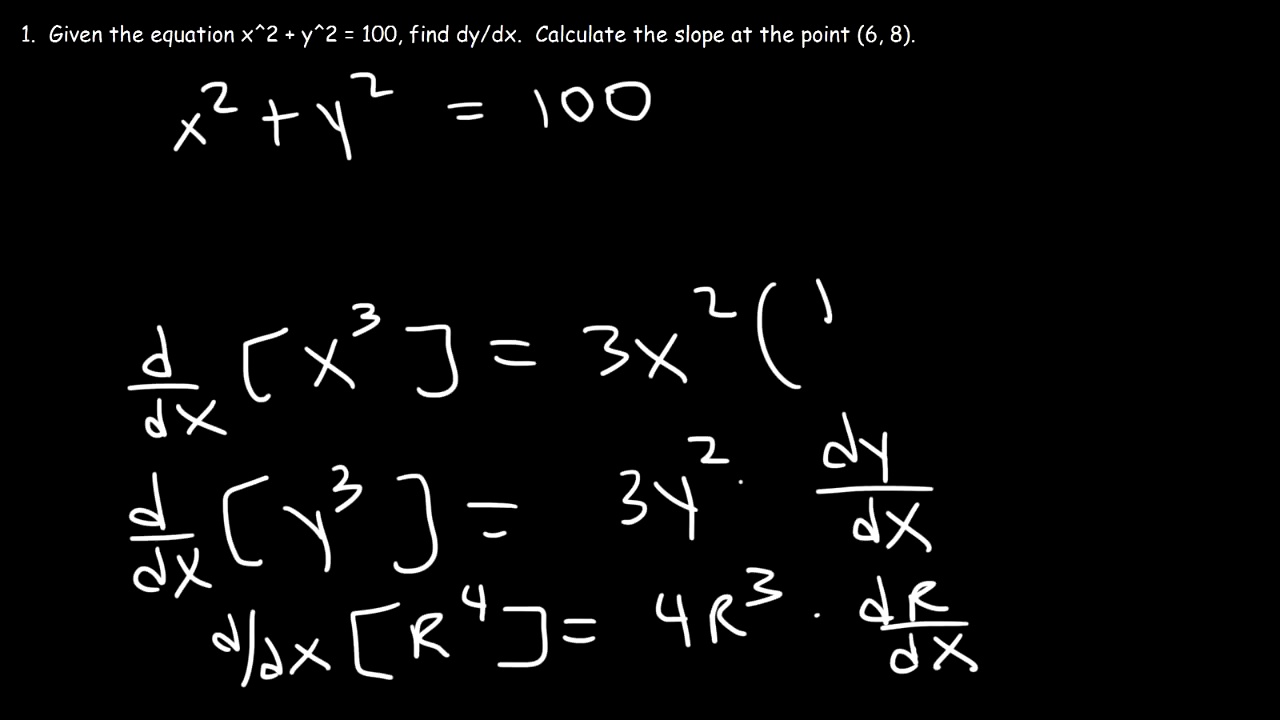 1. Given the equation x^2 + y^2 = 100, find dy/dx. Calculate the slope at the point (6, 8).
x² + y² = 100
d/dx [x³] = 3x² (1
d/dx [y³] = 3y² · dy/dx
d/dx [R⁴] = 4R³ · dR/dx